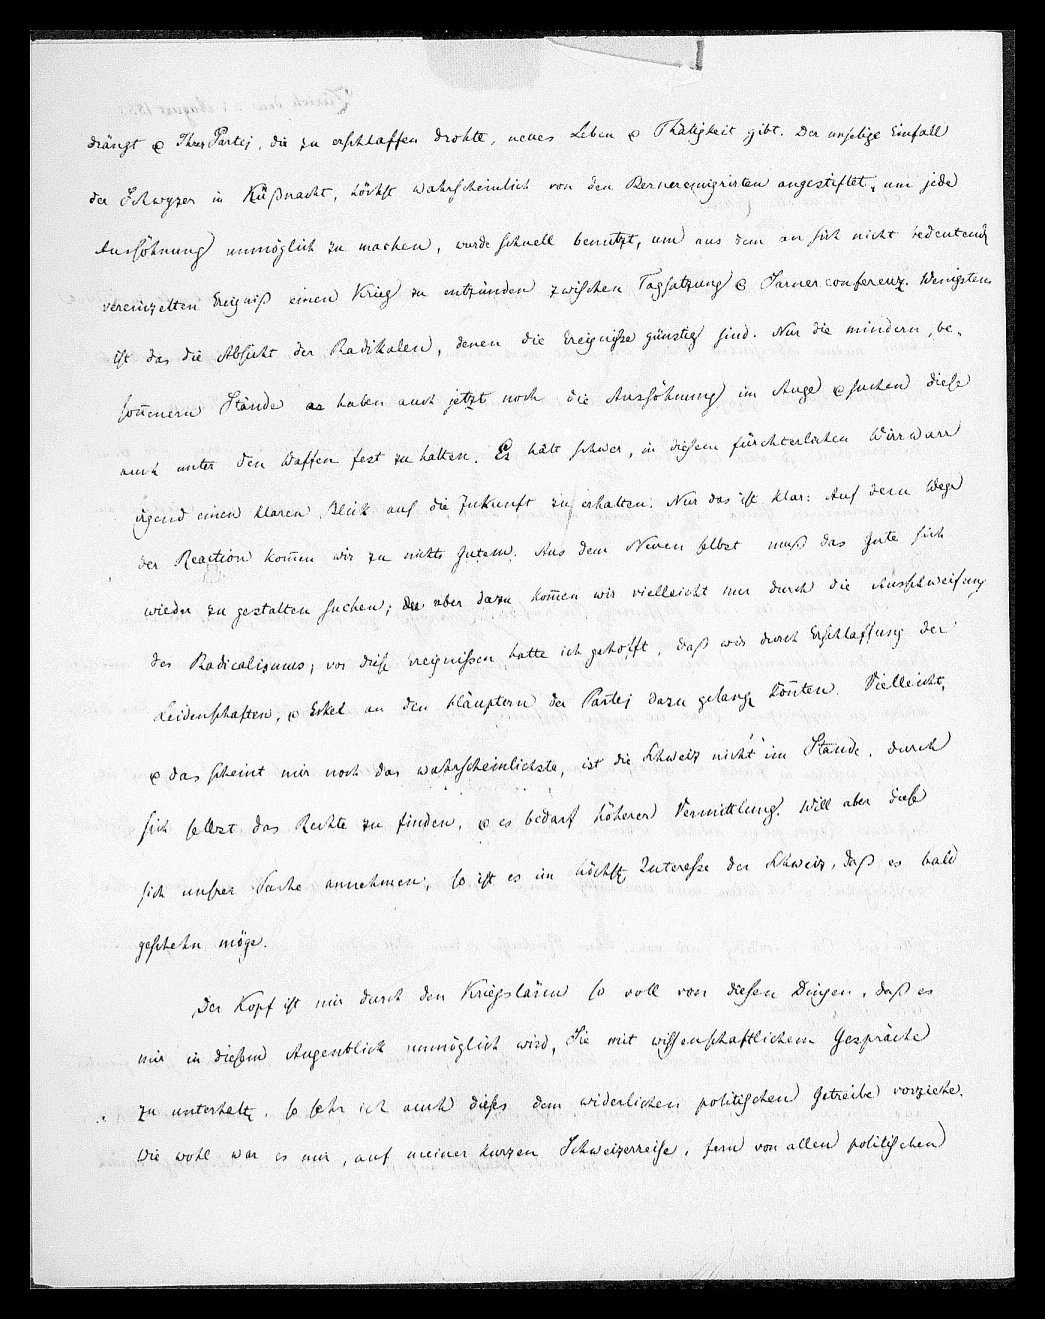 drängt & Ihrer Partei, die zu erschlaffen drohte, neues Leben & Thätigkeit gibt. Der unselige Einfall
der Schwyzer in Küßnacht, höchst wahrscheinlich von den Berneremigrirten angestiftet, um jede
Aussöhnung unmöglich zu machen, wurde schnell benutzt, um aus dem an sich nicht bedeutend
vereinzelten Ereigniß einen Krieg zu entzünden zwischen Tagsatzung & Sarnerconferenz. Wenigstens
ist das die Absicht der Radikalen, denen die Ereignisse günstig sind. Nur die mindern, be-
son̄enern Stände haben auch jetzt noch die Aussöhnung im Auge & suchen diese
auch unter den Waffen fest zu halten. Es hält schwer, in diesem fürchterlichen Wirrwarr
irgend einen klaren Blick auf die Zukunft zu erhalten. Nur das ist klar: Auf dem Wege
der Reaction kom̄en wir zu nichts Gutem. Aus dem Neuen selbst muß das Gute sich
wieder zu gestalten suchen; aber dazu kom̄en wir vielleicht nur durch die Ausschweifung
des Radicalismus; vor diese Ereignissen hatte ich gehofft, daß wir durch Erschlaffung der
Leidenschaften, & Ekel an den Häuptern der Partei dazu gelang kön̄ten. Vielleicht,
& das scheint mir noch das wahrscheinlichste, ist die Schweiz nicht im Stande, durch
sich selbst das Rechte zu finden, & es bedarf höherer Vermittlung. Will aber diese
sich unsrer Sache annehmen, so ist es im höchst Interesse der Schweiz, daß es bald
geschehn möge.
Der Kopf ist mir durch den Kriegslärm so voll von diesen Dingen, daß es
mir in diesem Augenblick unmöglich wird, Sie mit wissenschaftlichem Gespräche
zu unterhalt, so sehr ich auch dieses dem widerlichen politischen Getreibe vorziehe.
Wie wohl war es mir, auf meiner kurzen Schweizerreise, fern von allen politischen